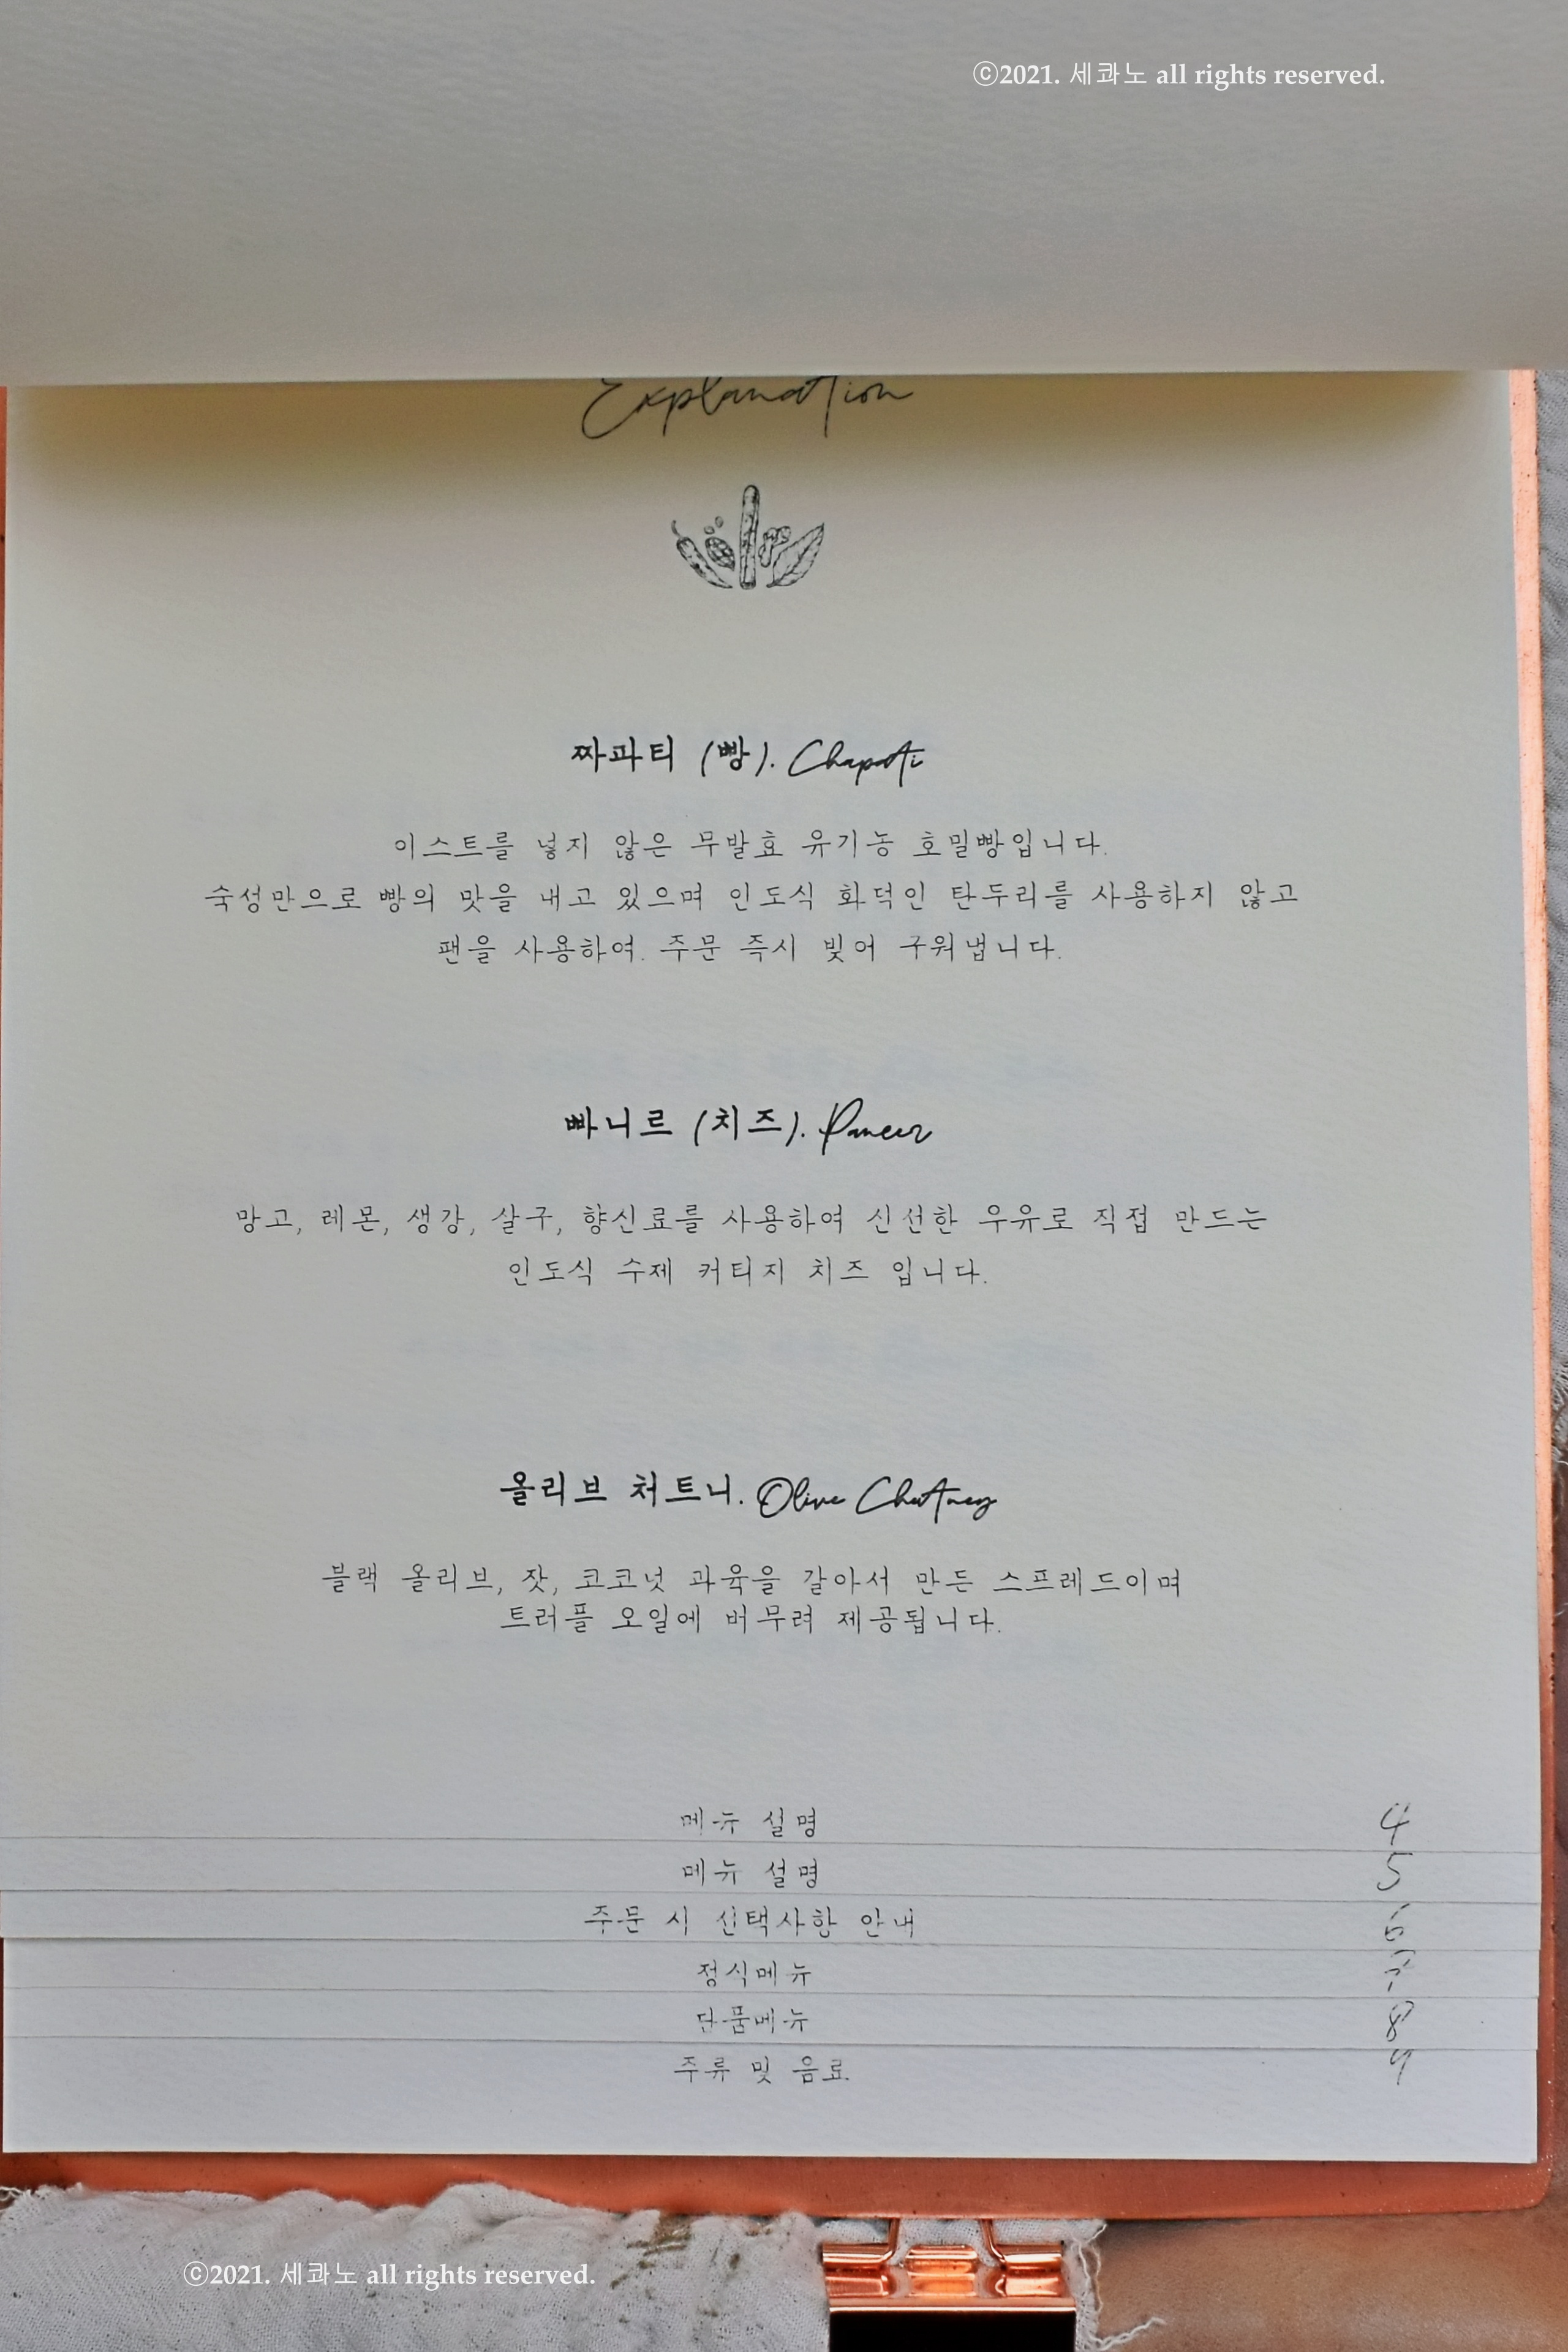 ⓒ2021. 세콰노 all rights reserved.
Explanation
짜파티 (빵). Chapati
이스트를 넣지 않은 무발효 유기농 호밀빵입니다.
숙성만으로 빵의 맛을 내고 있으며 인도식 화덕인 탄두리를 사용하지 않고
팬을 사용하여. 주문 즉시 빚어 구워냅니다.
빠니르 (치즈). Paneer
망고, 레몬, 생강, 살구, 향신료를 사용하여 신선한 우유로 직접 만드는
인도식 수제 커티지 치즈 입니다.
올리브 처트니. Olive Chutney
블랙 올리브, 잣, 코코넛 과육을 갈아서 만든 스프레드이며
트러플 오일에 버무려 제공됩니다.
메뉴 설명 4
메뉴 설명 5
주문 시 선택사항 안내 6
정식메뉴 7
단품메뉴 8
주류 및 음료 9
ⓒ2021. 세콰노 all rights reserved.